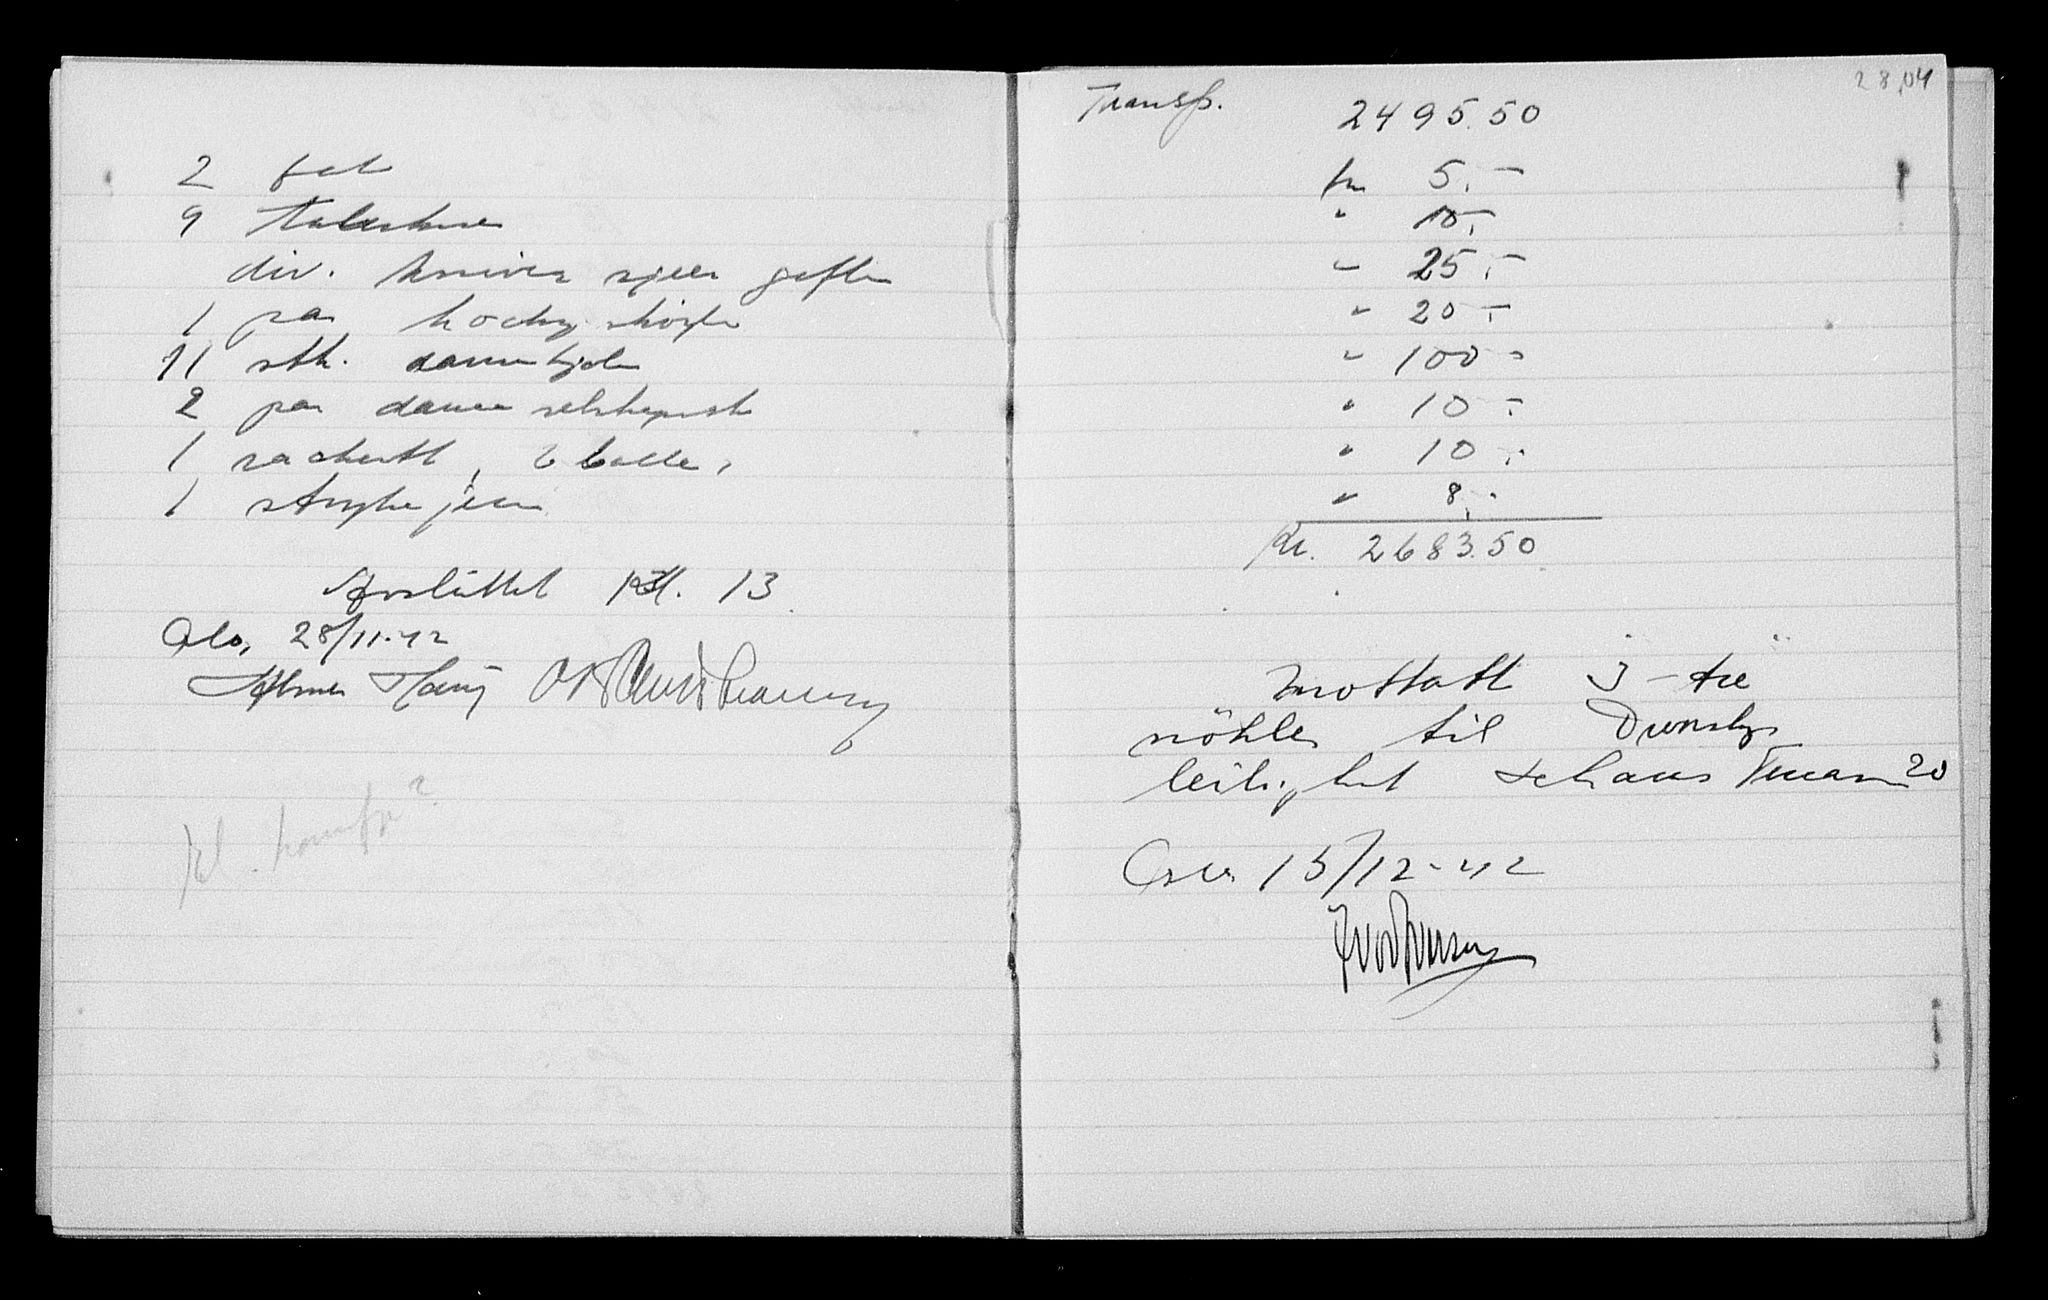 2 fat
9
div. kniver skjeer gafler
1 par hockey skøyter
11 stk. damekjoler
2 par dame selskapssk
1 rackertt, 2 baller,
1 strykejern
Avsluttet kl. 13
Oslo, 28/11-42
el. komfyr?
28,04
Transp. 2495.50
for 5.-
" 10,-
" 25.-
" 20.-
" 100-
" 10-
" 10-
" 8,-
Kr. 2683.50
Mottatt 3-tre
nökler til
leilighet 20
Oslo 15/12-42